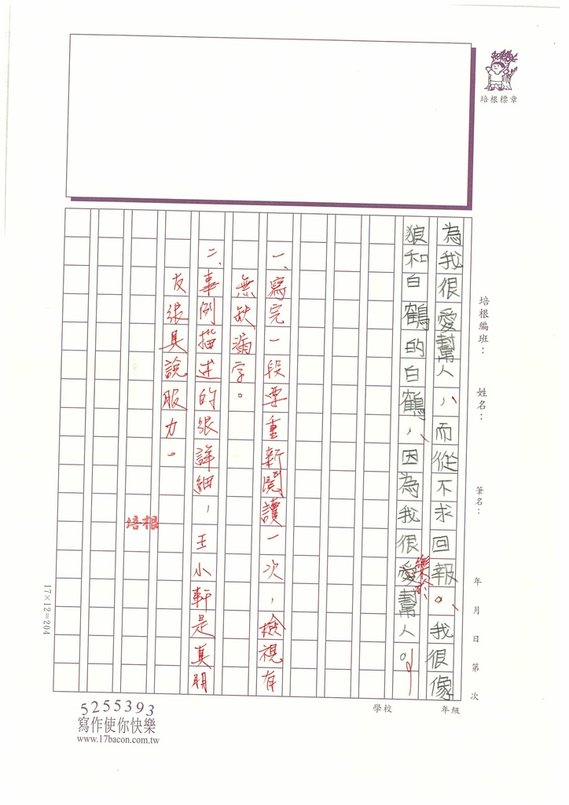 培根標章
培根編班：
姓名：
筆名：
年 月 日 第 次
學校 年級
為我很愛幫人，而從不求回報。我很像
狼和白鶴的白鶴，因為我很愛幫人。
樂於
一、寫完一段要重新閱讀一次，檢視有
無缺漏字。
二、事例描述的很詳細，王小軒是真朋
友張具說服力。
培根
17×12=204
5255393
寫作使你快樂
www.17bacon.com.tw